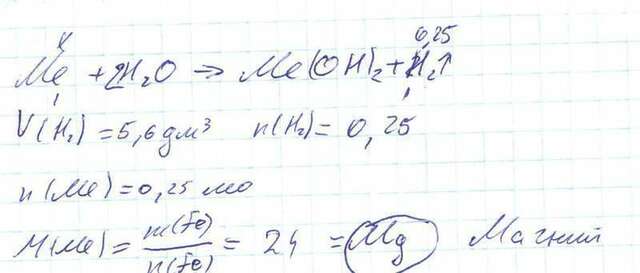 x 0,25
Me + 2H₂O ⇒ Me(OH)₂ + H₂↑
1 1
V(H₂) = 5,6 дм³ n(H₂) = 0,25
n(Me) = 0,25 мо
M(Me) = m(Fe)/n(Fe) = 24 = Mg Магний